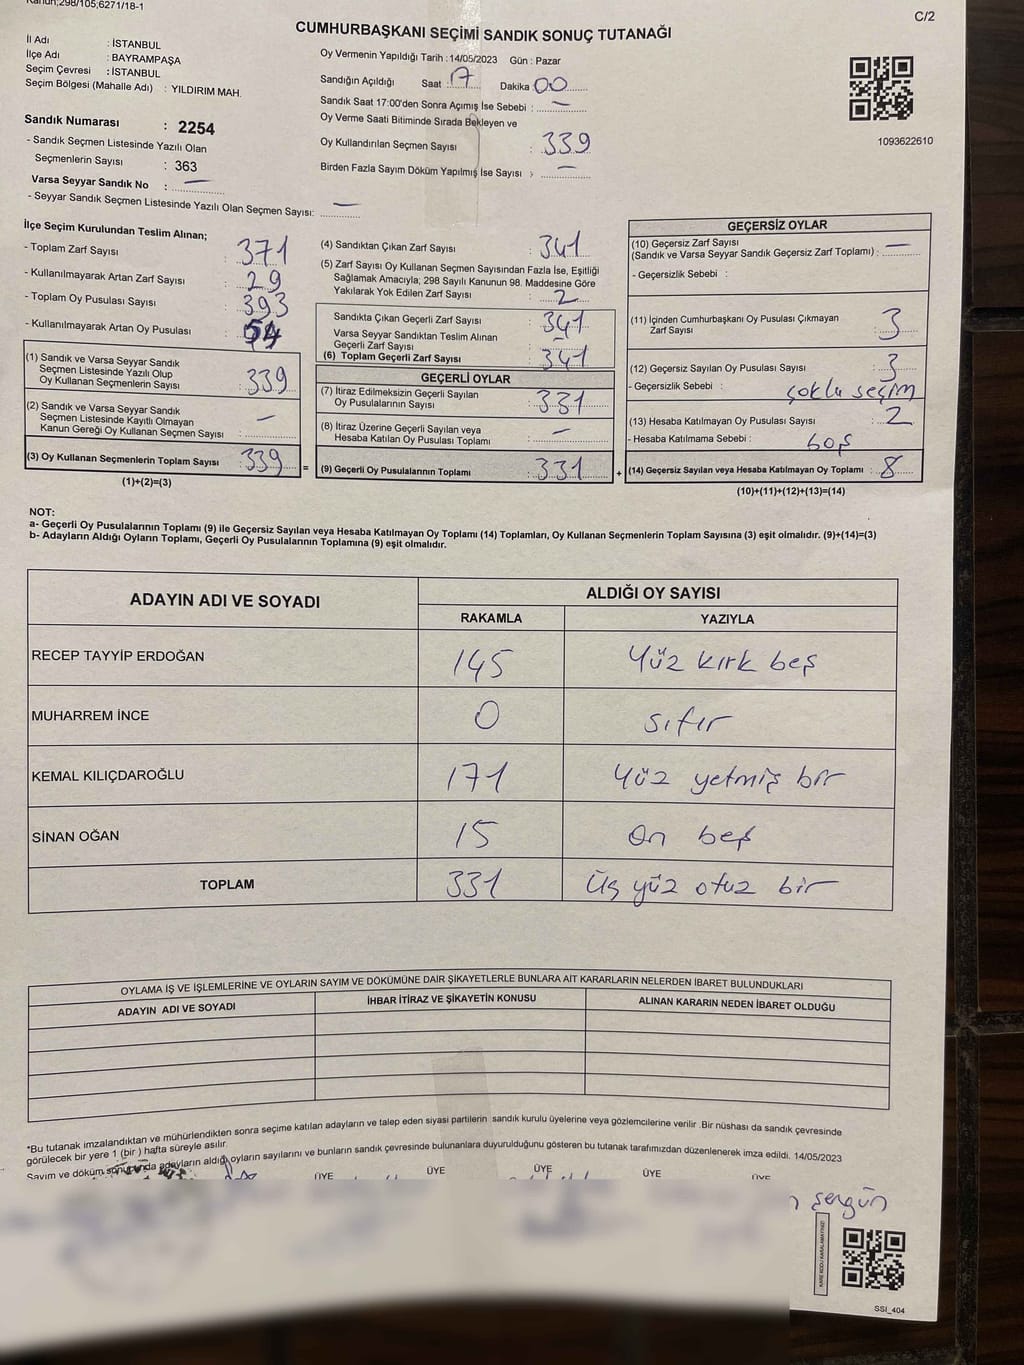 Kanun;298/105;6271/18-1
C/2
CUMHURBAŞKANI SEÇİMİ SANDIK SONUÇ TUTANAĞI
İl Adı : İSTANBUL
İlçe Adı : BAYRAMPAŞA
Seçim Çevresi : İSTANBUL
Seçim Bölgesi (Mahalle Adı) : YILDIRIM MAH.
Sandık Numarası : 2254
- Sandık Seçmen Listesinde Yazılı Olan
Seçmenlerin Sayısı : 363
Varsa Seyyar Sandık No : —
- Seyyar Sandık Seçmen Listesinde Yazılı Olan Seçmen Sayısı: —
Oy Vermenin Yapıldığı Tarih : 14/05/2023 Gün : Pazar
Sandığın Açıldığı Saat 17 Dakika 00
Sandık Saat 17:00'den Sonra Açımış İse Sebebi : —
Oy Verme Saati Bitiminde Sırada Bekleyen ve
Oy Kullandırılan Seçmen Sayısı : 339
Birden Fazla Sayım Döküm Yapılmış İse Sayısı : —
1093622610
İlçe Seçim Kurulundan Teslim Alınan;
- Toplam Zarf Sayısı : 371
- Kullanılmayarak Artan Zarf Sayısı : 29
- Toplam Oy Pusulası Sayısı : 393
- Kullanılmayarak Artan Oy Pusulası :
(1) Sandık ve Varsa Seyyar Sandık
Seçmen Listesinde Yazılı Olup
Oy Kullanan Seçmenlerin Sayısı : 339
(2) Sandık ve Varsa Seyyar Sandık
Seçmen Listesinde Kayıtlı Olmayan
Kanun Gereği Oy Kullanan Seçmen Sayısı : —
(3) Oy Kullanan Seçmenlerin Toplam Sayısı : 339
(1)+(2)=(3)
=
(4) Sandıktan Çıkan Zarf Sayısı : 341
(5) Zarf Sayısı Oy Kullanan Seçmen Sayısından Fazla İse, Eşitliği
Sağlamak Amacıyla; 298 Sayılı Kanunun 98. Maddesine Göre
Yakılarak Yok Edilen Zarf Sayısı : 2
Sandıkta Çıkan Geçerli Zarf Sayısı : 341
Varsa Seyyar Sandıktan Teslim Alınan
Geçerli Zarf Sayısı : —
(6) Toplam Geçerli Zarf Sayısı : 341
GEÇERLİ OYLAR
(7) İtiraz Edilmeksizin Geçerli Sayılan
Oy Pusulalarının Sayısı : 331
(8) İtiraz Üzerine Geçerli Sayılan veya
Hesaba Katılan Oy Pusulası Toplamı : —
(9) Geçerli Oy Pusulalarının Toplamı : 331
+
GEÇERSİZ OYLAR
(10) Geçersiz Zarf Sayısı
(Sandık ve Varsa Seyyar Sandık Geçersiz Zarf Toplamı) : —
- Geçersizlik Sebebi :
(11) İçinden Cumhurbaşkanı Oy Pusulası Çıkmayan
Zarf Sayısı : 3
(12) Geçersiz Sayılan Oy Pusulası Sayısı : 3
- Geçersizlik Sebebi : çoklu seçim
(13) Hesaba Katılmayan Oy Pusulası Sayısı : 2
- Hesaba Katılmama Sebebi : boş
(14) Geçersiz Sayılan veya Hesaba Katılmayan Oy Toplamı : 8
(10)+(11)+(12)+(13)=(14)
NOT:
a- Geçerli Oy Pusulalarının Toplamı (9) ile Geçersiz Sayılan veya Hesaba Katılmayan Oy Toplamı (14) Toplamları, Oy Kullanan Seçmenlerin Toplam Sayısına (3) eşit olmalıdır. (9)+(14)=(3)
b- Adayların Aldığı Oyların Toplamı, Geçerli Oy Pusulalarının Toplamına (9) eşit olmalıdır.
ADAYIN ADI VE SOYADI ALDIĞI OY SAYISI
RAKAMLA YAZIYLA
RECEP TAYYİP ERDOĞAN 145 Yüz kırk beş
MUHARREM İNCE 0 sıfır
KEMAL KILIÇDAROĞLU 171 Yüz yetmiş bir
SİNAN OĞAN 15 On beş
TOPLAM 331 Üç yüz otuz bir
OYLAMA İŞ VE İŞLEMLERİNE VE OYLARIN SAYIM VE DÖKÜMÜNE DAİR ŞİKAYETLERLE BUNLARA AİT KARARLARIN NELERDEN İBARET BULUNDUKLARI
ADAYIN ADI VE SOYADI İHBAR İTİRAZ VE ŞİKAYETİN KONUSU ALINAN KARARIN NEDEN İBARET OLDUĞU
*Bu tutanak imzalandıktan ve mühürlendikten sonra seçime katılan adayların ve talep eden siyasi partilerin sandık kurulu üyelerine veya gözlemcilerine verilir .Bir nüshası da sandık çevresinde
görülecek bir yere 1 (bir ) hafta süreyle asılır.
Sayım ve döküm sonucunda adayların aldığı oyların sayılarını ve bunların sandık çevresinde bulunanlara duyurulduğunu gösteren bu tutanak tarafımızdan düzenlenerek imza edildi. 14/05/2023
ÜYE ÜYE ÜYE ÜYE ÜYE
şengün
KARE KODU KARALAMAYINIZ!
SSI_404